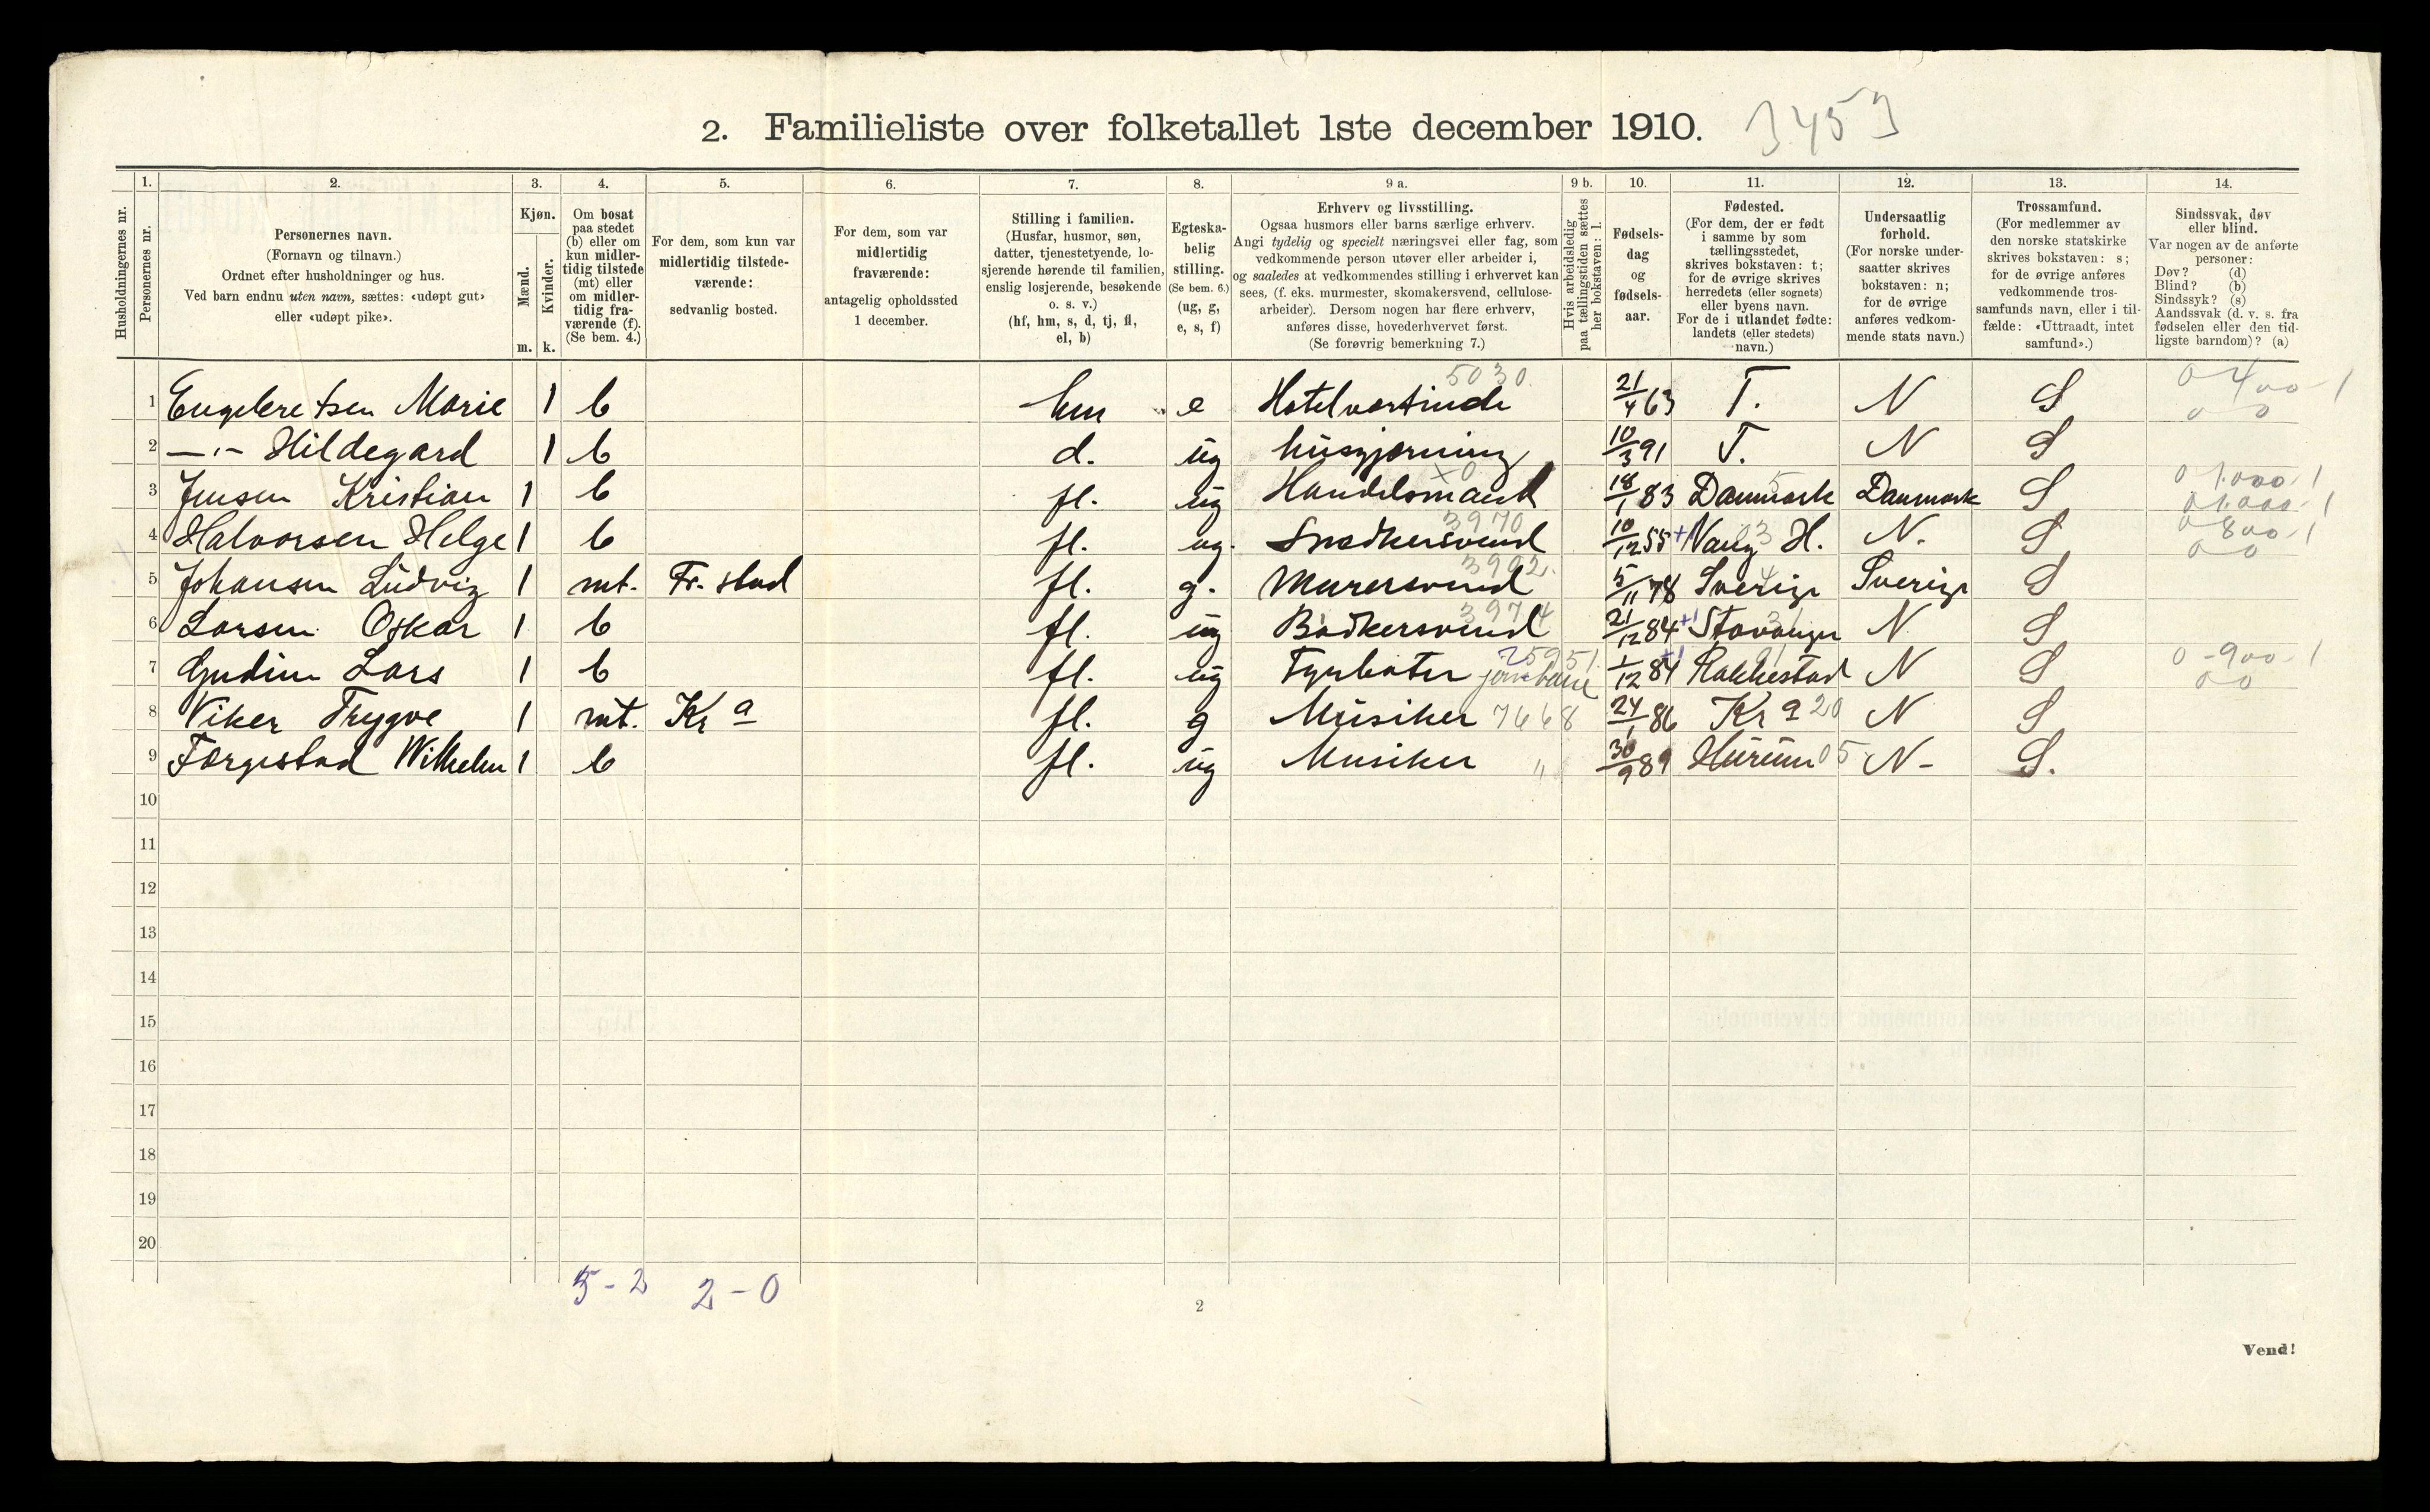 2. Familieliste over folketallet 1ste december 1910. 3453
Husholdningernes nr.
1. Personernes nr.
2. Personernes navn.
(Fornavn og tilnavn.)
Ordnet efter husholdninger og hus.
Ved barn endnu uten navn, sættes: «udøpt gut»
eller «udøpt pike».
3. Kjøn.
Mænd. m.
Kvinder. k.
4. Om bosat
paa stedet
(b) eller om
kun midler-
tidig tilstede
(mt) eller
om midler-
tidig fra-
værende (f).
(Se bem. 4.)
5. For dem, som kun var
midlertidig tilstede-
værende:
sedvanlig bosted.
6. For dem, som var
midlertidig
fraværende:
antagelig opholdssted
1 december.
7. Stilling i familien.
(Husfar, husmor, søn,
datter, tjenestetyende, lo-
sjerende hørende til familien,
enslig losjerende, besøkende
o. s. v.)
(hf, hm, s, d, tj, fl,
el, b)
8. Egteska-
belig
stilling.
(Se bem. 6.)
(ug, g,
e, s, f)
9 a. Erhverv og livsstilling.
Ogsaa husmors eller barns særlige erhverv.
Angi tydelig og specielt næringsvei eller fag, som
vedkommende person utøver eller arbeider i,
og saaledes at vedkommendes stilling i erhvervet kan
sees, (f. eks. murmester, skomakersvend, cellulose-
arbeider). Dersom nogen har flere erhverv,
anføres disse, hovederhvervet først.
(Se forøvrig bemerkning 7.)
9 b. Hvis arbeidsledig
paa tællingstiden sættes
her bokstaven: l.
10. Fødsels-
dag
og
fødsels-
aar.
11. Fødested.
(For dem, der er født
i samme by som
tællingsstedet,
skrives bokstaven: t;
for de øvrige skrives
herredets (eller sognets)
eller byens navn.
For de i utlandet fødte:
landets (eller stedets)
navn.)
12. Undersaatlig
forhold.
(For norske under-
saatter skrives
bokstaven: n;
for de øvrige
anføres vedkom-
mende stats navn.)
13. Trossamfund.
(For medlemmer av
den norske statskirke
skrives bokstaven: s;
for de øvrige anføres
vedkommende tros-
samfunds navn, eller i til-
fælde: «Uttraadt, intet
samfund».)
14. Sindssvak, døv
eller blind.
Var nogen av de anførte
personer:
Døv? (d)
Blind? (b)
Sindssyk? (s)
Aandssvak (d. v. s. fra
fødselen eller den tid-
ligste barndom)? (a)
1 Engebretsen Marie 1 b hm e Hotelvertinde 5030 21/4 63 T. N S 0 400-1 0 0
2 —„— Hildegard 1 b d. ug husgjerning 10/3 91 T. N S
3 Jensen Kristian 1 b fl. ug Handelsmand x0 18/1 83 Danmark 5 Danmark S 0 1.000-1 0 1.000-1
4 Halvorsen Helge 1 b fl. ug. Snedkersvend 3970 10/12 55 + Vang H. 03 N. S 0 800-1 0 0
5 Johansen Ludvig 1 mt. Fr. stad fl. g. Murersvend 3992 5/11 78 Sverige 4 Sverige S
6 Larsen Oskar 1 b fl. ug Bødkersvend 3974 21/12 84 +1 Stavanger 31 N S
7 Gudim Lars 1 b fl. ug Fyrbøter jernbane 25951 1/12 84 +1 Rakkestad 01 N S 0-900-1 0 0
8 Viker Trygve 1 mt. Kr a fl. g Musiker 7668 24/1 86 Kr a 20 N S
9 Færgestad Wilhelm 1 b fl. ug Musiker „ 30/9 89 Hurum 05 N- S.
10
11
12
13
14
15
16
17
18
19
20
5-2 2-0
2
Vend!